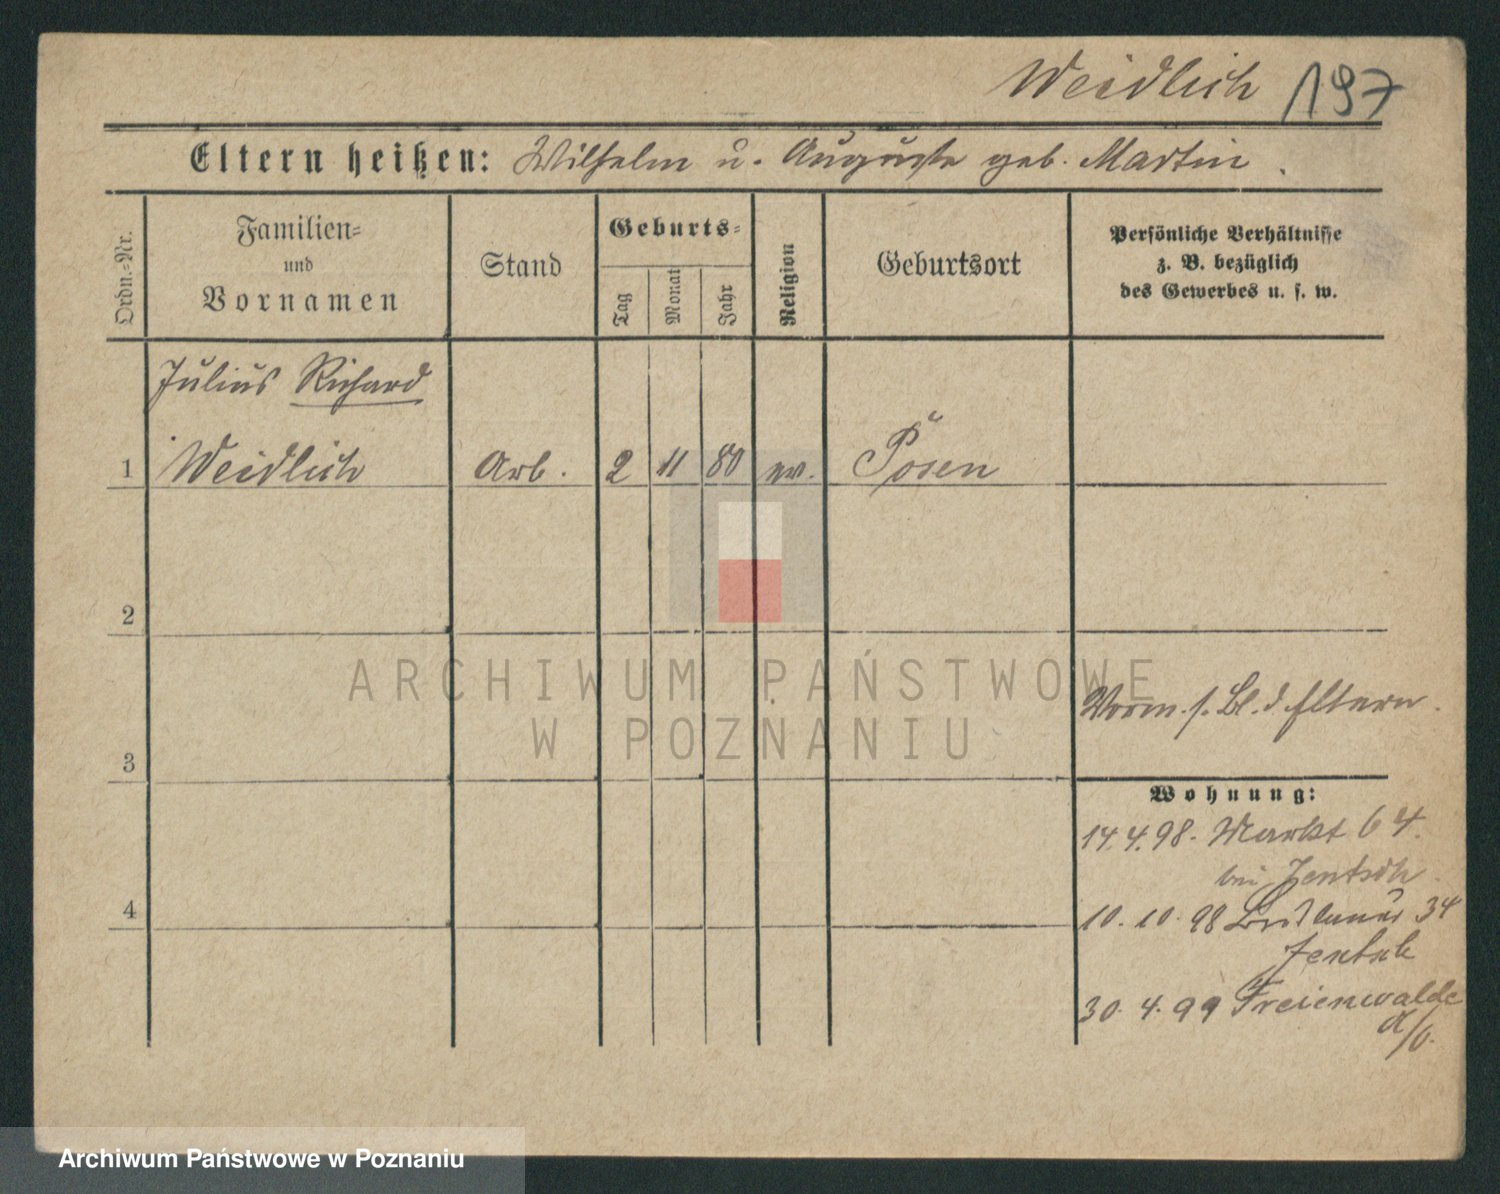 Weidlich 197
Eltern heißen: Wilhelm u. Auguste geb. Martin.
Ordn.=Nr.
Familien=
und
Vornamen
Stand
Geburts=
Tag
Monat
Jahr
Religion
Geburtsort
Persönliche Verhältnisse
z. B. bezüglich
des Gewerbes u. s. w.
Julius Richard
1 Weidlich Arb. 2 11 80 ev. Posen
2
ARCHIWUM PAŃSTWOWE
W POZNANIU
Vorm. s. Bl. d. Eltern.
3
Wohnung:
14.4.98. Markt 64.
bei Jentsch.
4
10. 10. 98 34
Jentsch
30. 4. 99 Freienwalde
a/O.
Archiwum Państwowe w Poznaniu